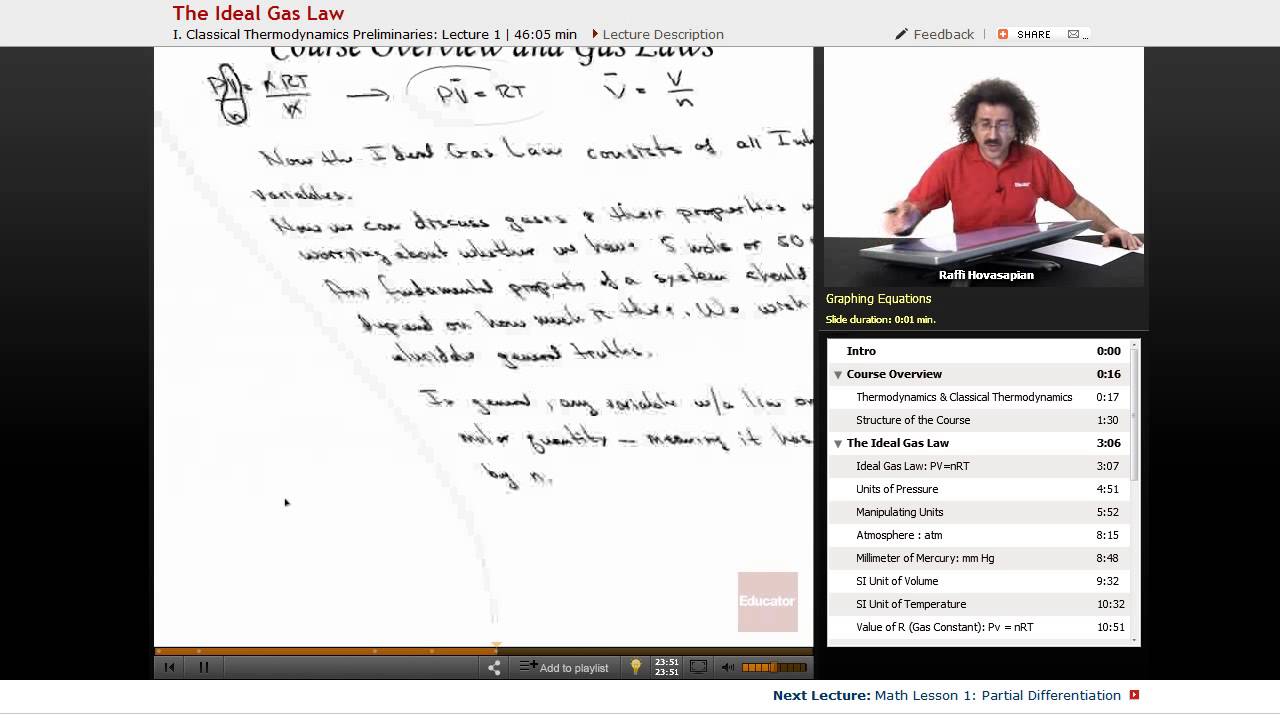 The Ideal Gas Law
I. Classical Thermodynamics Preliminaries: Lecture 1 | 46:05 min Lecture Description
Feedback | SHARE ...
Course Overview and Gas Laws
PV/n = nRT/n → PV̄ = RT V̄ = V/n
Now the Ideal Gas Law consists of all
variables.
Now we can discuss gases & their properties
worrying about whether we have 5 mols or 50
Any fundamental property of a system should
depend on how much is there. We wish
elucidate general truths.
In general, any variable w/a line
molar quantity — meaning it has
by n.
Educator
23:51
23:51
Add to playlist
Raffi Hovasapian
Graphing Equations
Slide duration: 0:01 min.
Intro 0:00
Course Overview 0:16
Thermodynamics & Classical Thermodynamics 0:17
Structure of the Course 1:30
The Ideal Gas Law 3:06
Ideal Gas Law: PV=nRT 3:07
Units of Pressure 4:51
Manipulating Units 5:52
Atmosphere : atm 8:15
Millimeter of Mercury: mm Hg 8:48
SI Unit of Volume 9:32
SI Unit of Temperature 10:32
Value of R (Gas Constant): Pv = nRT 10:51
Next Lecture: Math Lesson 1: Partial Differentiation